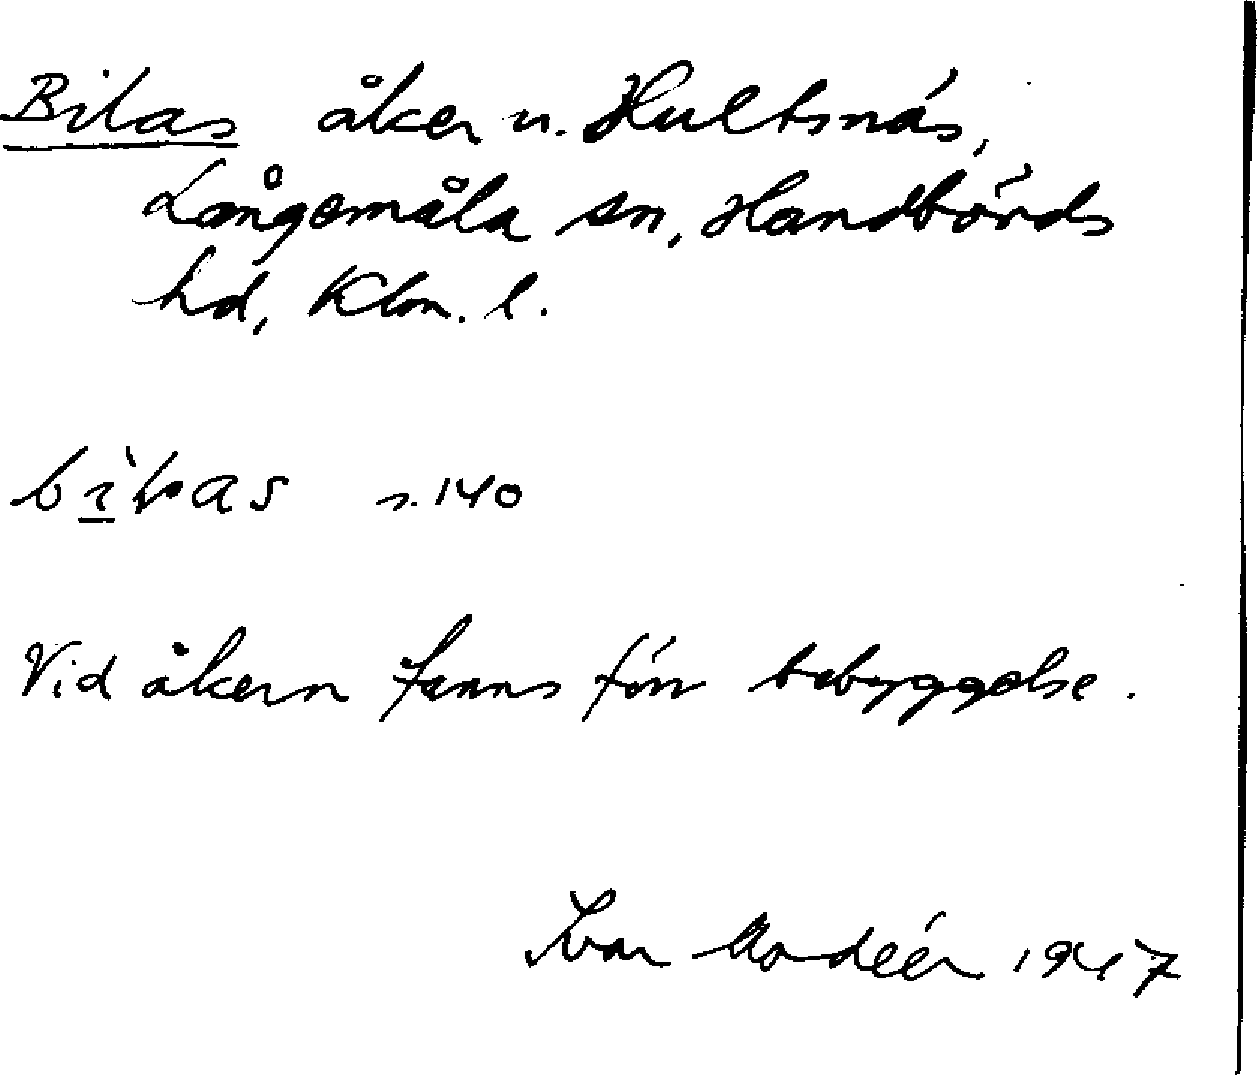 Bilas åker u. Hultsnäs,
Långemåla sn, Handbörds
hd, Klm. l.
s. 140
Vid åkern fanns förr bebyggelse.
Ivar Modéer 1947